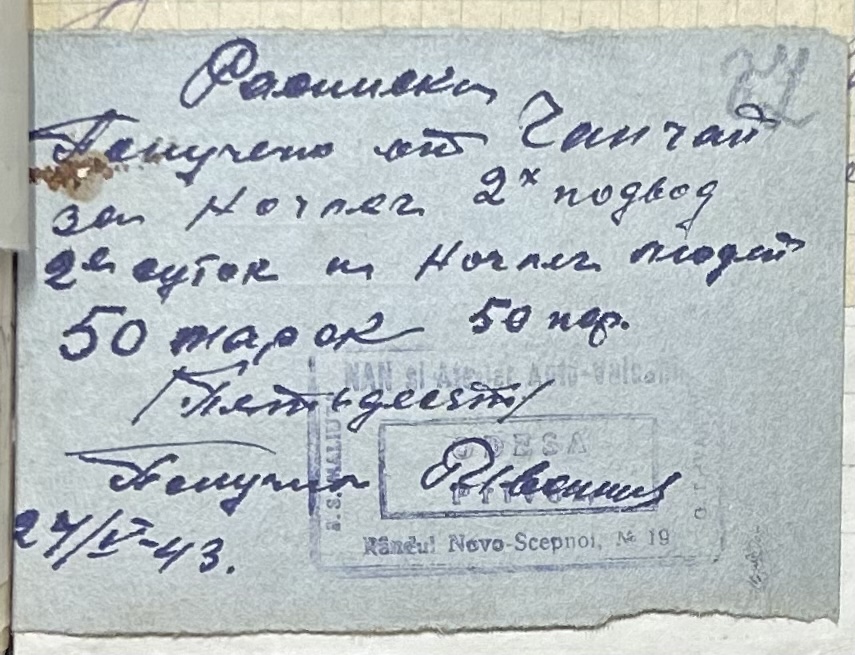 Расписка
Получено от Ганчай
за Ночлег 2х подвод
2е суток и Ночлег людей
50 марок 50 мар.
/Пятьдесят/
Получил
24/V-43.
NAN si Atelier Auto-Vulcani
ODESA
PRIVOZ
Rândul Novo-Scepnoi, № 19